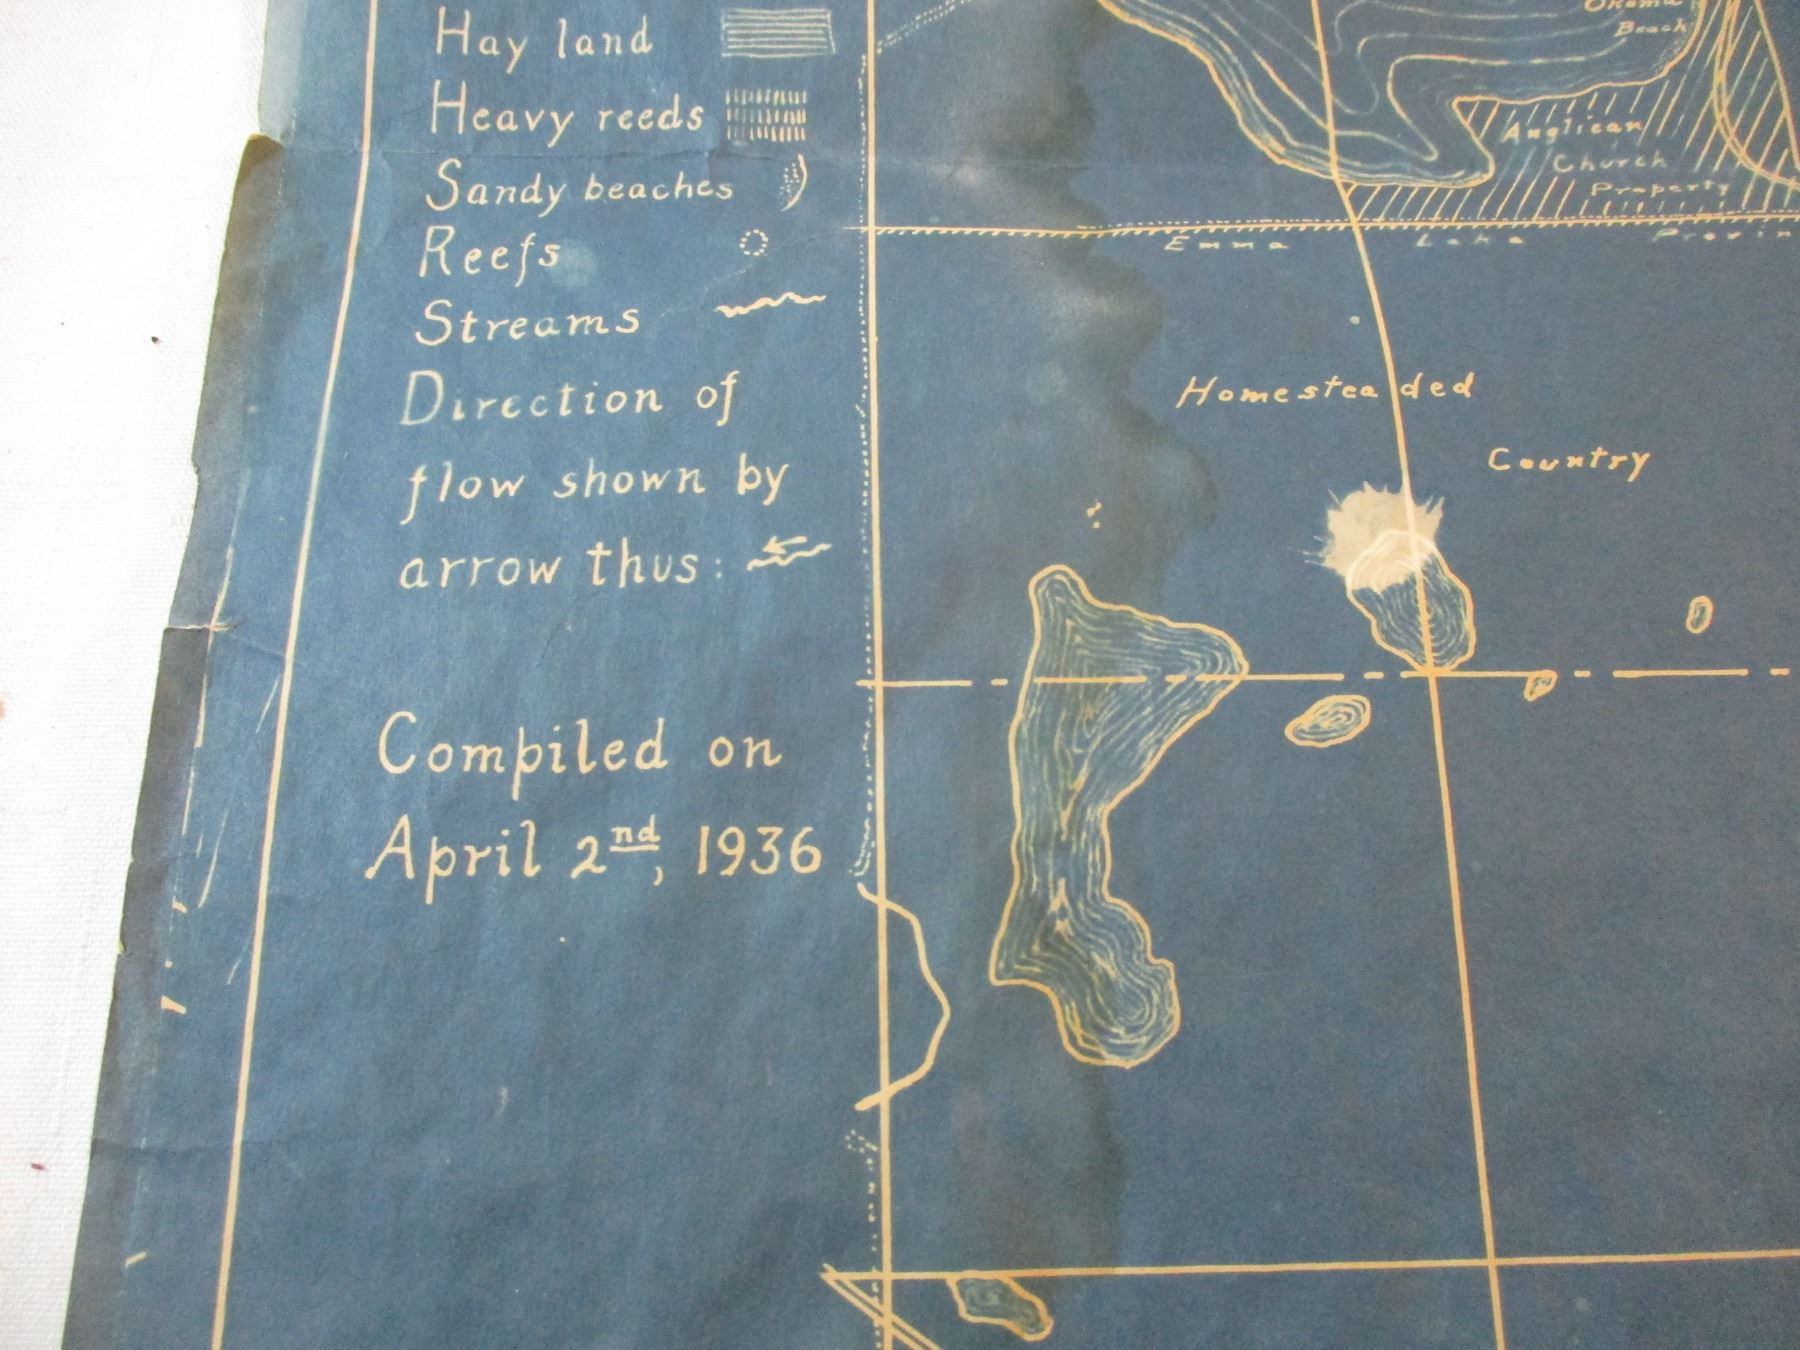 Hay land
Heavy reeds
Sandy beaches
Reefs
Streams
Direction of
flow shown by
arrow thus:
Compiled on
April 2nd, 1936
Okema
Beach
Anglican
Church
Property
Emma Lake Provin
Homesteaded
Country